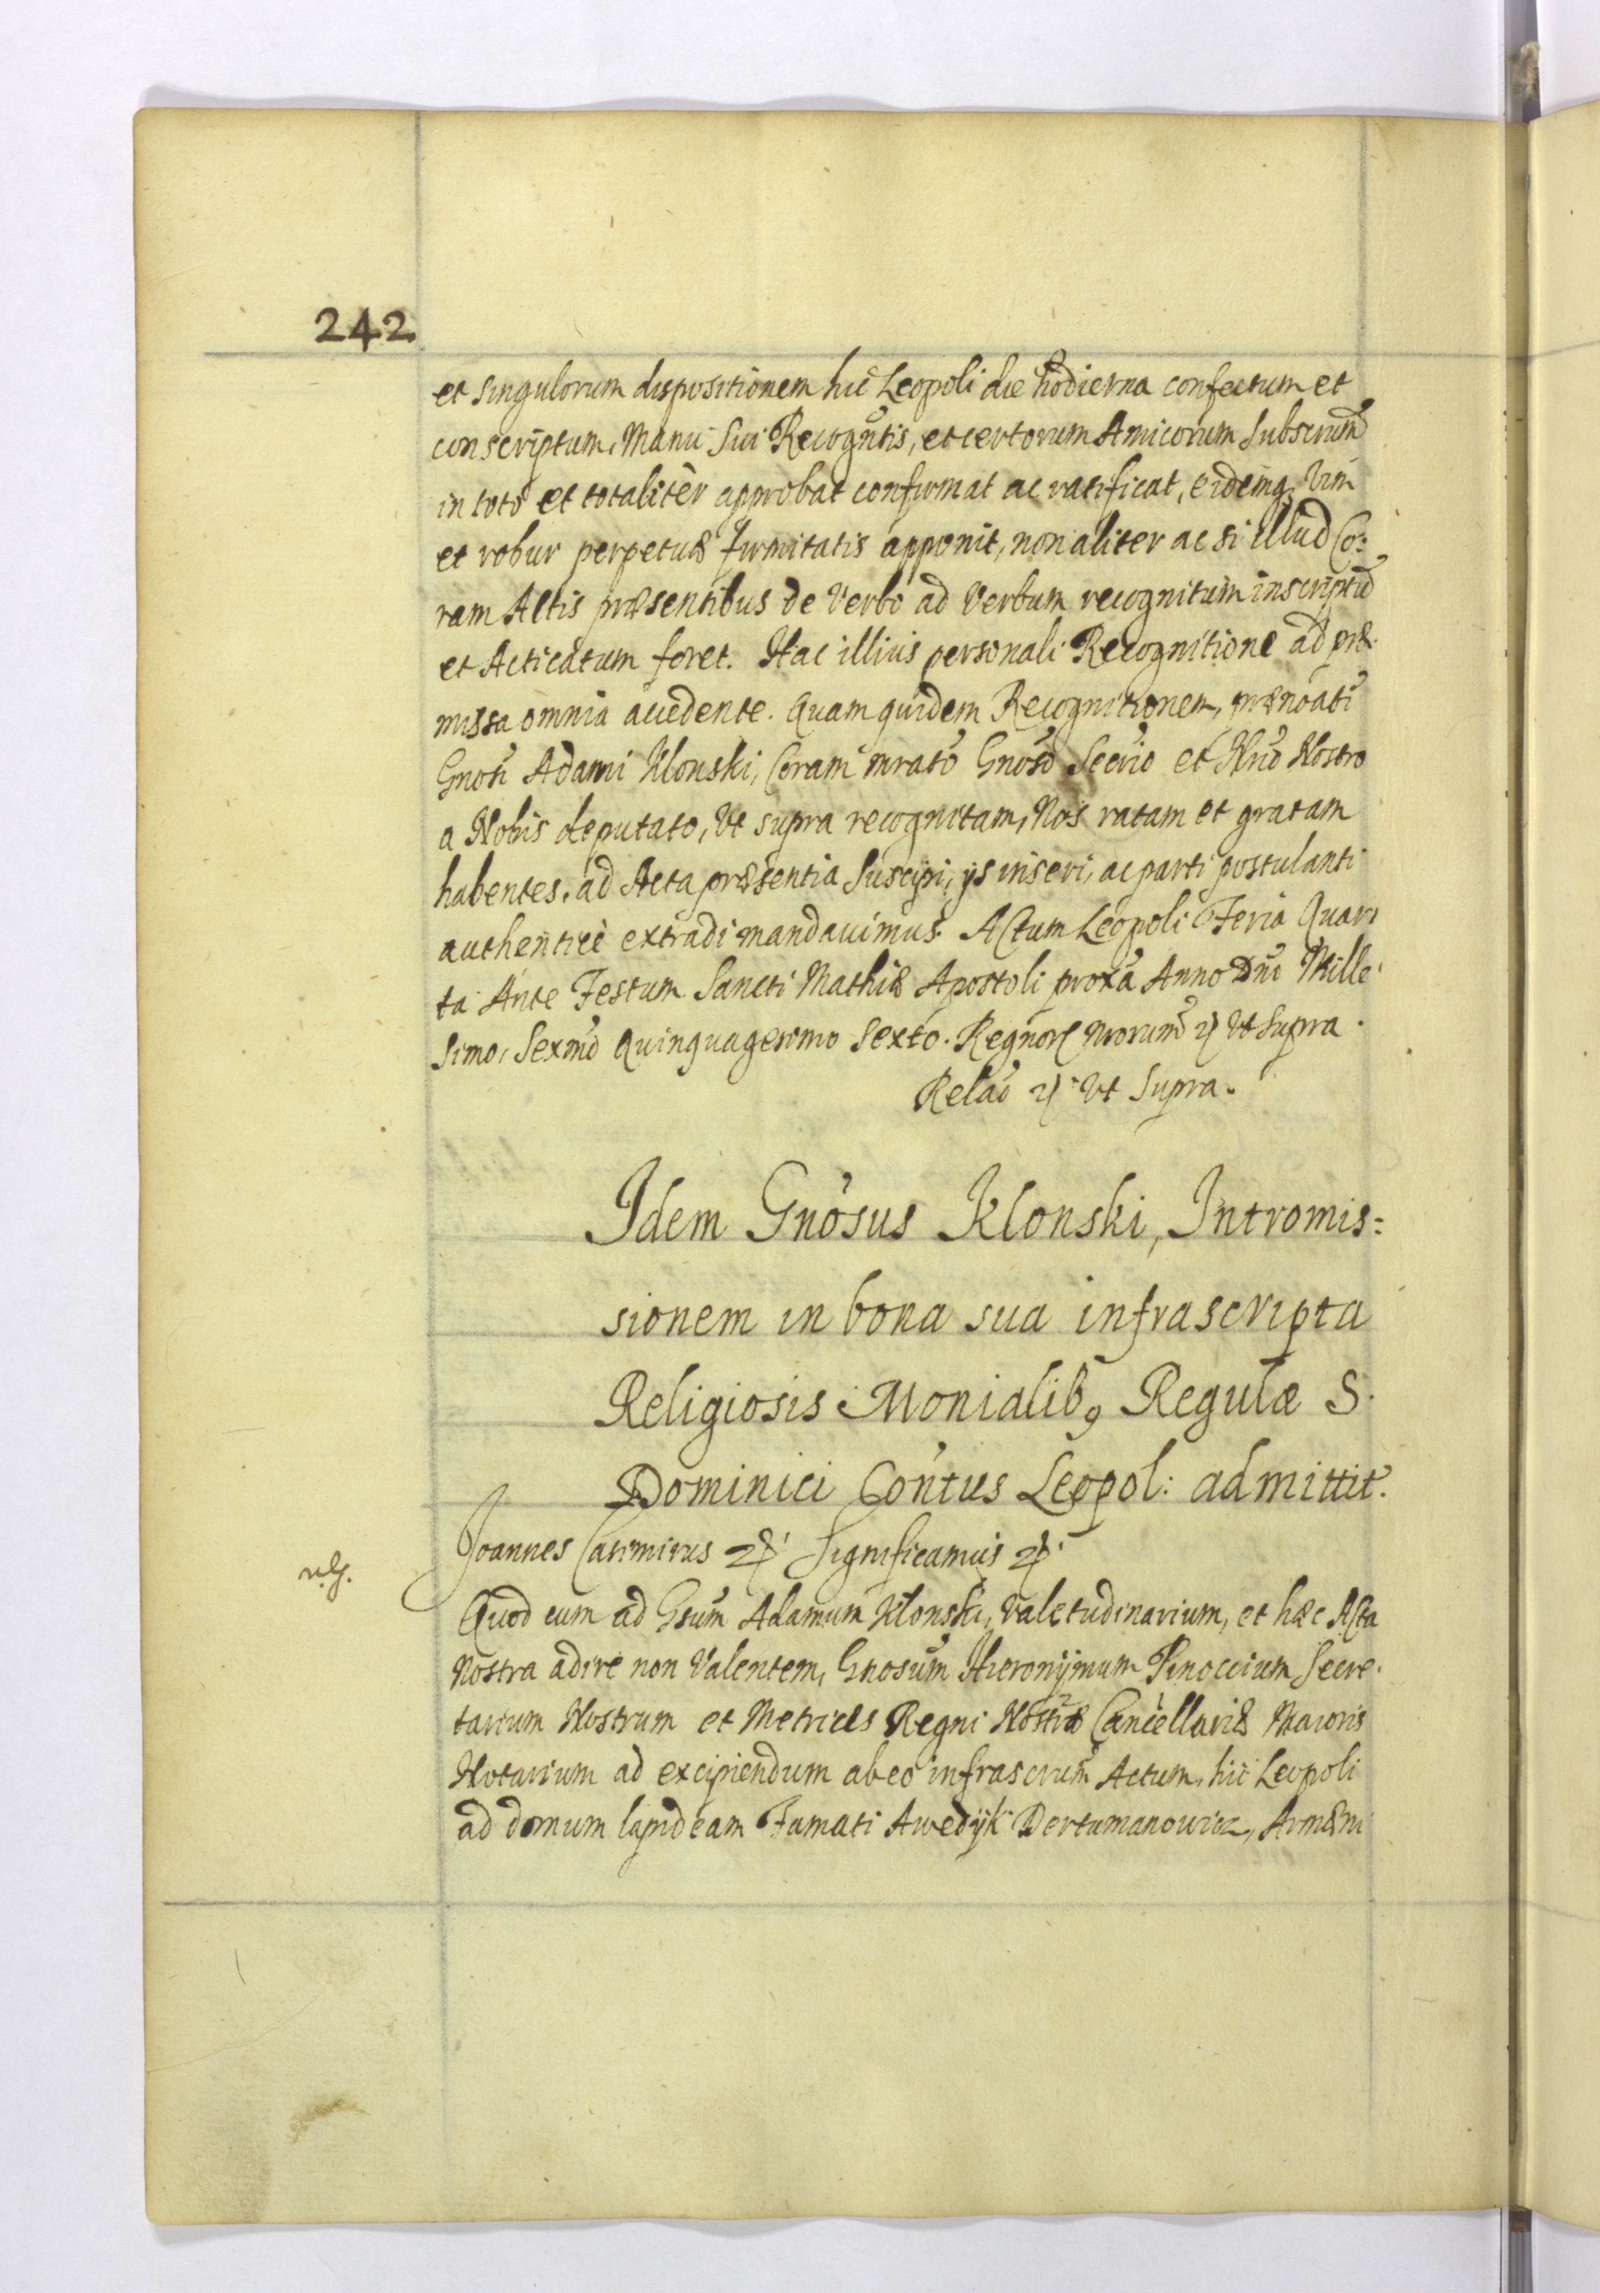 242
et singulorum dispositionem hic Leopoli die hodierna confectum et
conscriptum, Manu sui Recogntis, et certorum Amicorum Subscrum
in toto et totaliter approbat confirmat ac ratificat, eidemq; vim
et robur perpetuæ firmitatis apponit, non aliter ac si illud Co:
ram Actis præsentibus de Verbo ad Verbum recognitum inscriptū
et Acticatum foret. Hac illius personali Recognitione ad præ
missa omnia accedente. Quam quidem Recognitionem, prænoati
Gnosi Adami Klonski, Coram mrato Gnoso Secrio et Nrio Nostro
a Nobis deputato, Vt supra recognitam, Nos ratam et gratam
habentes, ad Acta præsentia Suscipi, ijs inseri, ac parti postulanti
authenticè extradi mandauimus. Actum Leopoli Feria Quar
ta Ante Festum Sancti Mathiæ Apostoli proxa Anno Dni Mille
simo, Sexmo Quinquagesimo Sexto. Regnor Nrorum Vt Supra.
Relao Vt Supra.
Idem Gnosus Klonski, Intromis:
sionem in bona sua infrascripta
Religiosis Monialib9 Regulæ S.
Dominici Contus Leopol: admittit.
Joannes Casimirus Significamus
Quod cum ad Gsum Adamum Klonski, Valetudinarium, et hæc Acta
Nostra adire non Valentem, Gnosum Hieronijmum Pinoccium Secre
tarium Nostrum et Metrices Regni Nostræ Cancellariæ Maioris
Notarium ad excipiendum ab eo infrascrum Actum, hic Leopoli
ad domum lapideam Famati Awedijk Dertumanowicz, Armæni